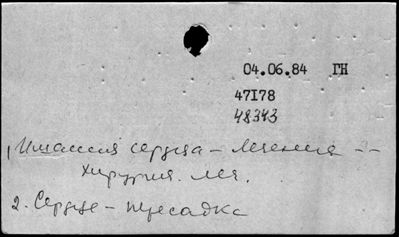 04.06.84 ГН
47I78
48343
1, Ишемия сердца – лечение --
хирургия. леч.
2. Сердце – пересадка